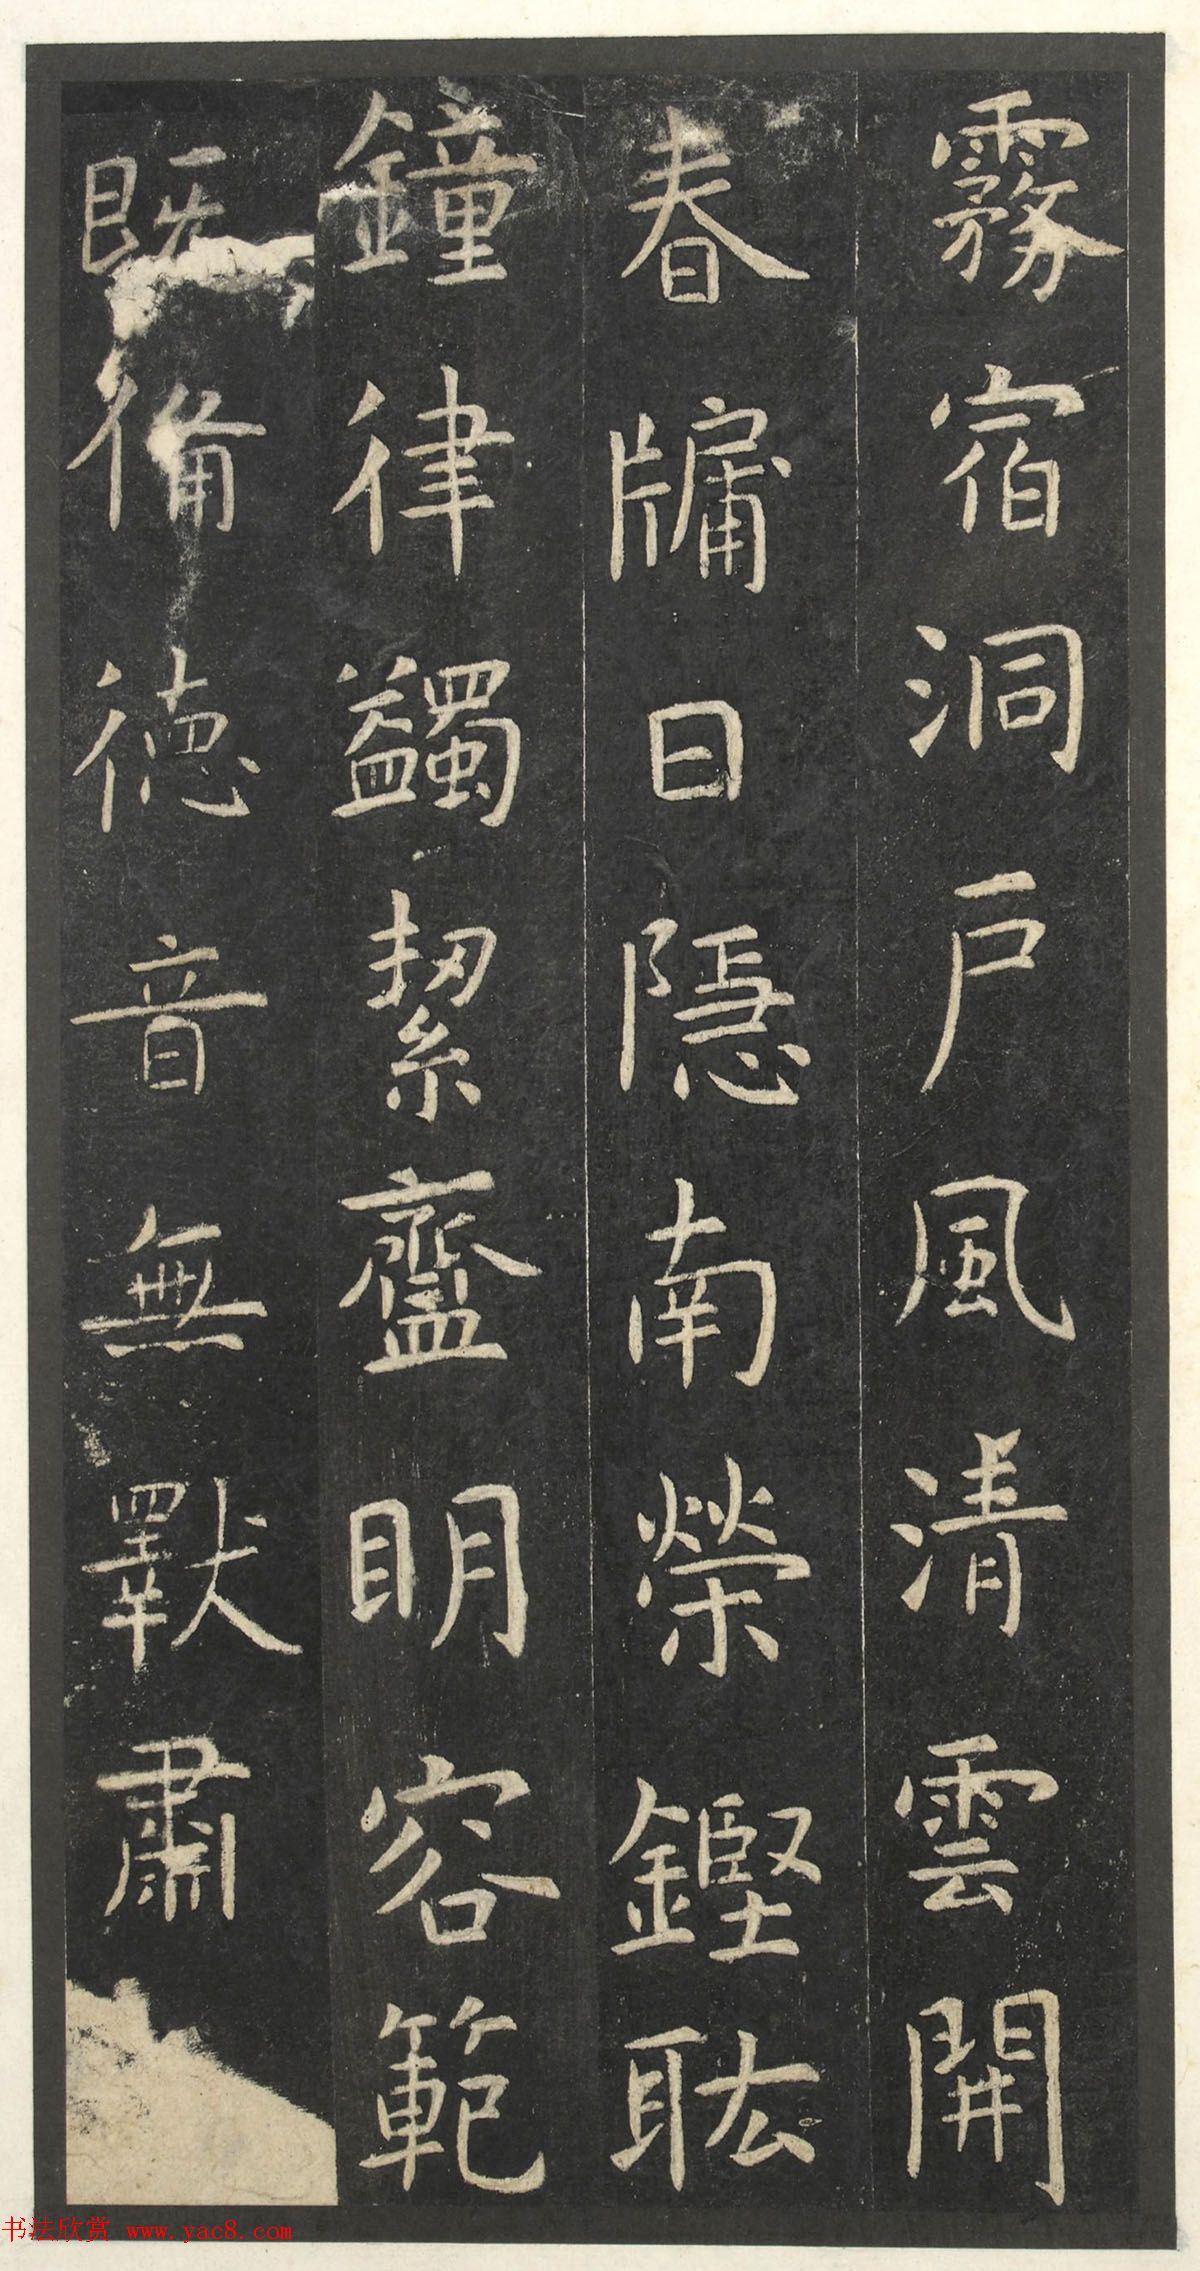 霧宿洞户風清雲開
春牖日隱南榮鏗耾
鐘律蠲絜齍明容範
既備德音無斁肅
书法欣赏 www.yac8.com